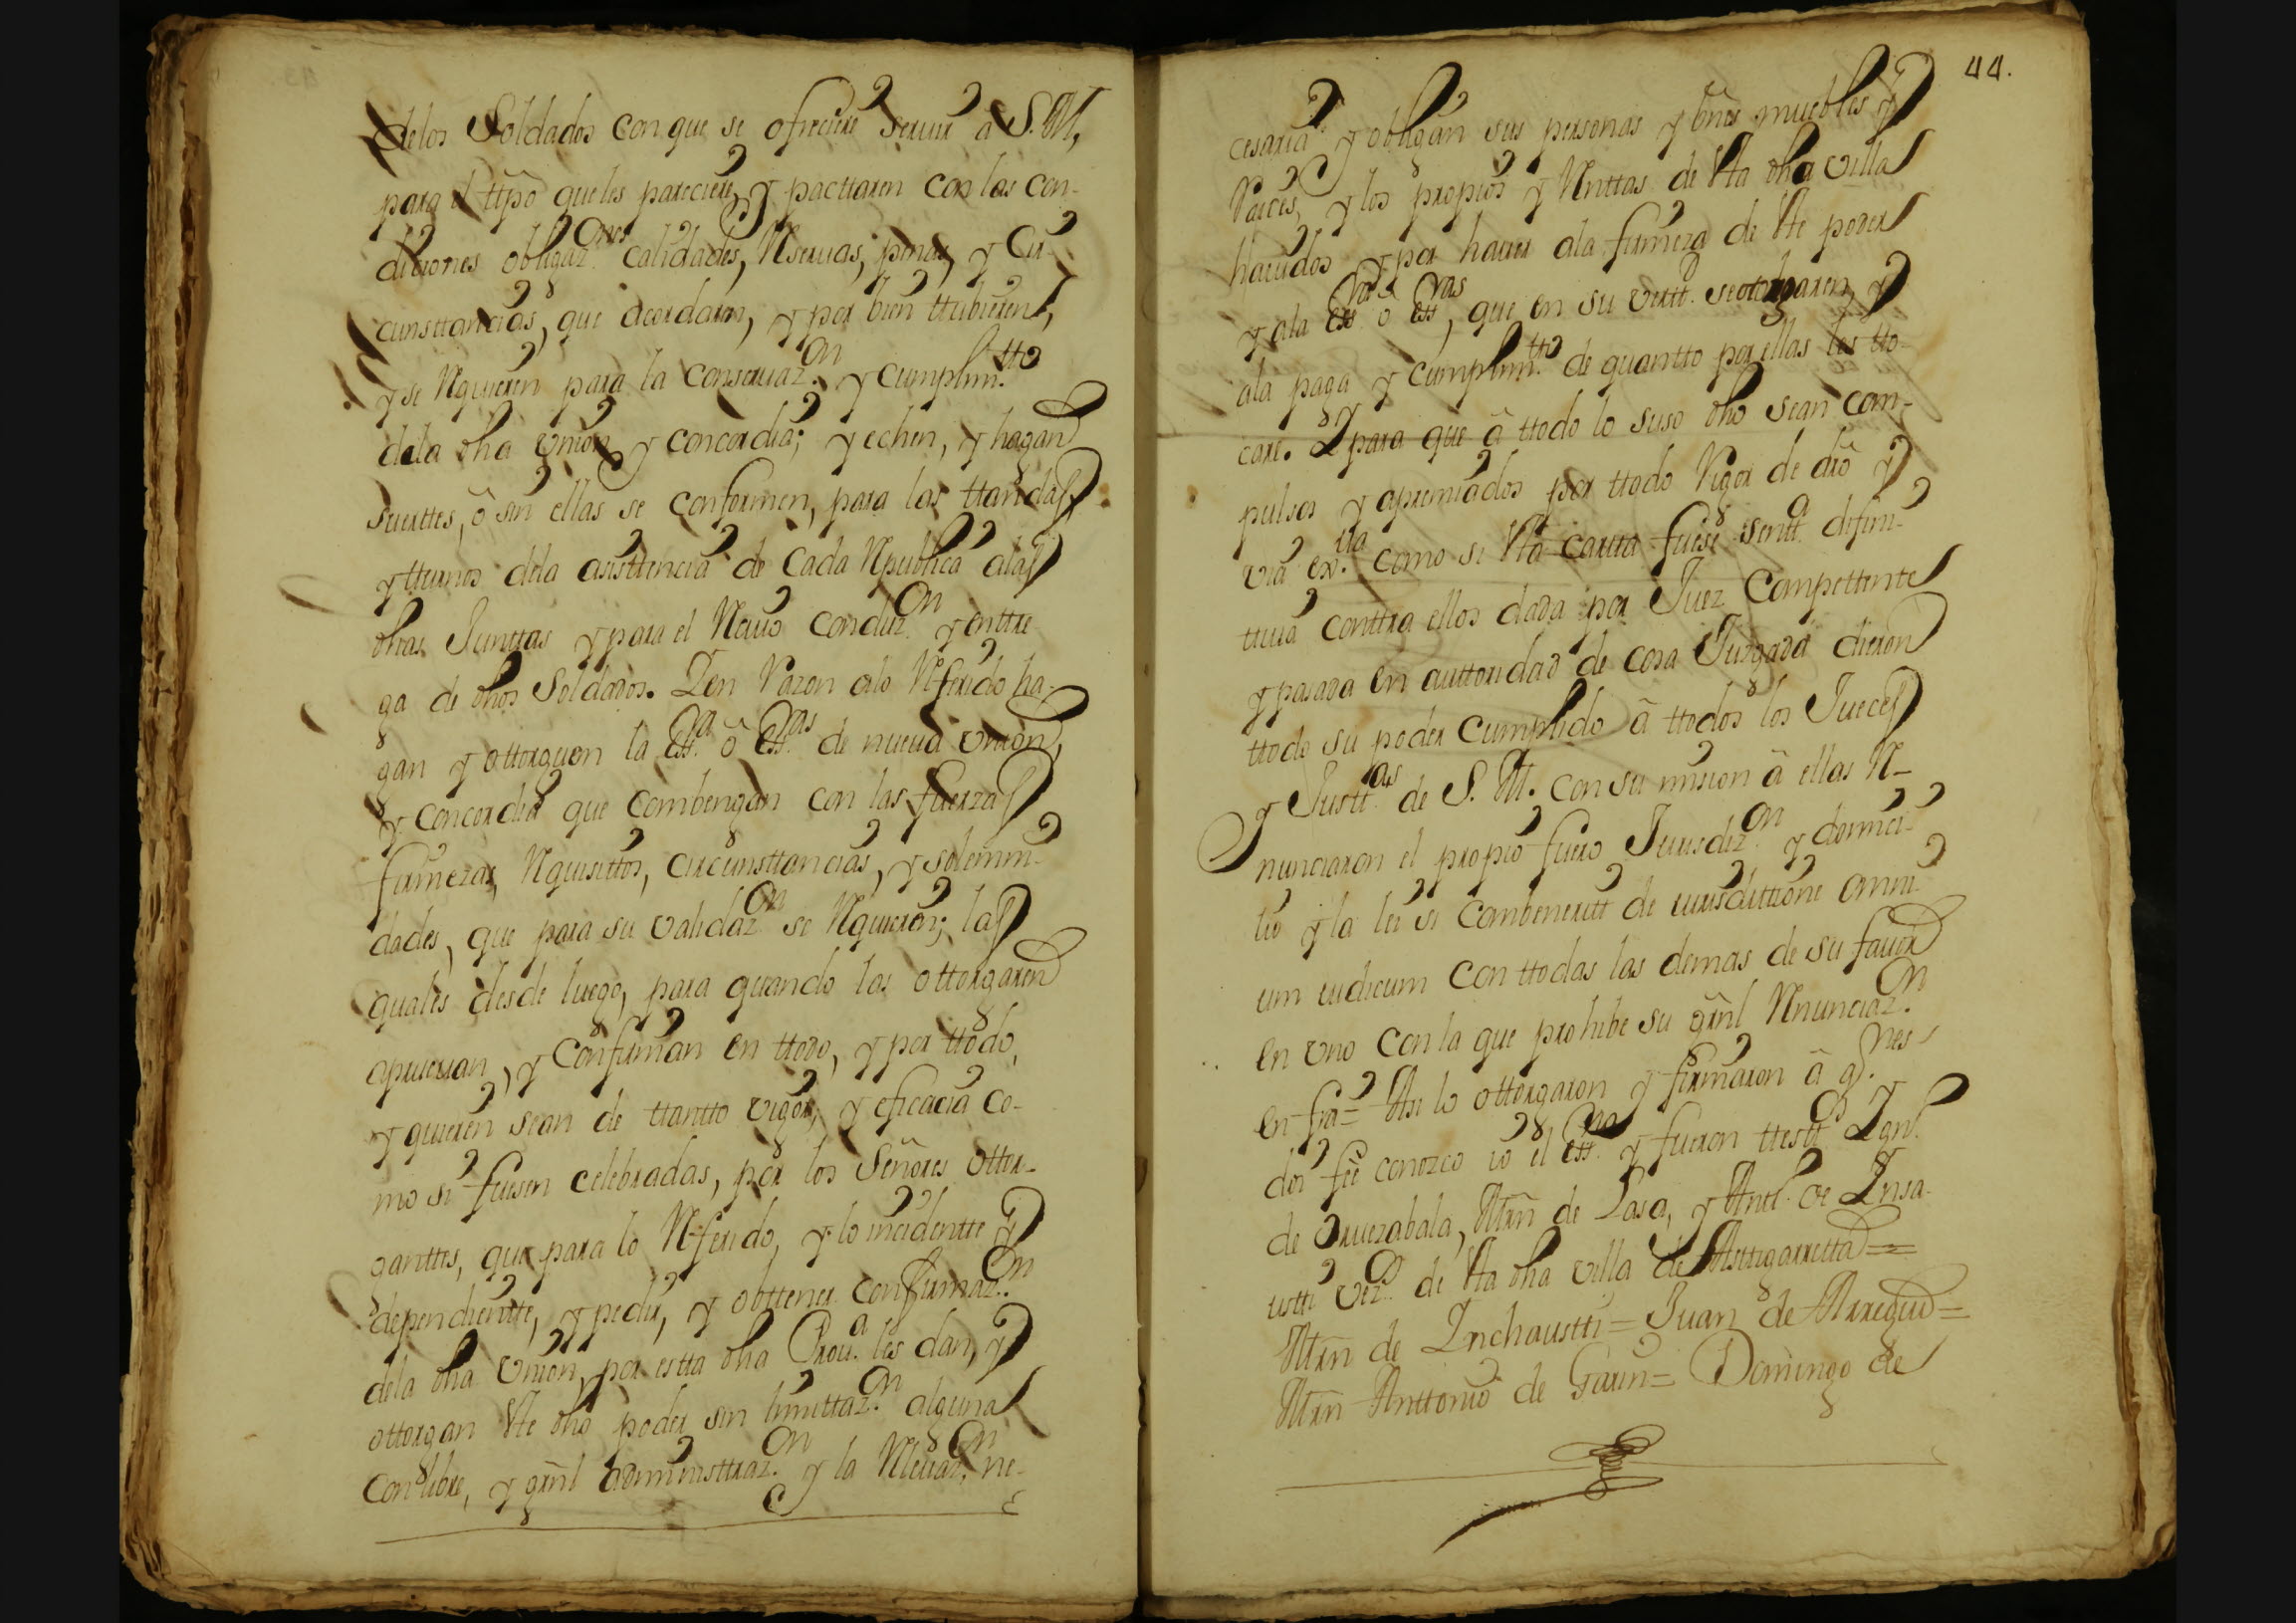 delos Soldados conque se ofreciere seruir â S. M,
para el ttpô queles pareciere, y pacttaren con las con-
diciones obligaz.ones calidades, Rseruas, penas, y Cir-
cunsttancias, que acordaren, y por bien ttubieren,
y se Rquieren para la conseruaz.on y cumplim.tto
dela dha Vnion y concordia; y echen, y hagan
suerttes, ô sin ellas se conformen, para las ttandas,
y tturnos dela asisttencia de cada Rpublica alas
dhas Junttas y para el Rciuo conduz.on y enttre-
ga de dhos Soldados. Y en Razon alo Rferido ha-
gan y ottorguen la ess.ra ô ess.ras de nueua Vnion,
y concordia que combengan con las fuerzas
firmezas, Rquisittos, circunsttancias, y solemni-
dades, que para su validaz.on se Rquieren; las
quales desde luego, para quando las ottorgaren
aprueuan, y confirman en ttodo, y por ttodo,
y quieren sean de ttantto vigor, y eficacia co-
mo si fuesen celebradas, por los Señores ottor-
ganttes, que para lo Rferido, y lo incidentte y
dependientte, y pedir, y obttener confirmaz.on
dela dha Vnion, por estta dha Prou.a les dan, y
ottorgan estte dho poder sin limittaz.on alguna
con libre, y grãl administtraz.on y la Rleuaz.on ne-
44.
cesaria y obligan sus personas y bnês muebles y
Raices, y los propios y Rnttas de estta dha villa
hauidos y por hauer ala firmeza de estte poder
y ala ess.ra ô ess.ras, que en su virtt.d seottorgaren, y
ala paga y cumplim.tto de quantto por ellas les tto-
care. Y para que â ttodo lo suso dho sean com-
pulsos y apremiados por ttodo Rigor de drô y
via ex.ua como si estta cartta fuese sentt.a difini-
ttiua conttra ellos dada por Juez Compettente
y pasada en auttoridad de cosa Juzgada dieron
ttodo su poder cumplido â ttodos los Jueces
y Justt.as de S. M. con sumision â ellas R-
nunciaron el propio fuero Jurisdiz.on y domici-
lio y la lei si combeneritt de iurisdittione omni-
um iudicum con ttodas las demas de su fauor
en vno con la que prohibe su grãl Rnunciaz.on
en fra= Asi lo ottorgaron y firmaron â q.nes
doi feè conozco io el ess.no y fueron ttestt.os Ygn.o
de Oruezabala, Mrñ de Lasa, y Antt.o de Ynsa-
ustti vez.os de estta dha villa de Asttigarretta=
Mrñ de Ynchaustti= Juan de Arregui=
Mrñ Anttonio de Garin= Domingo de